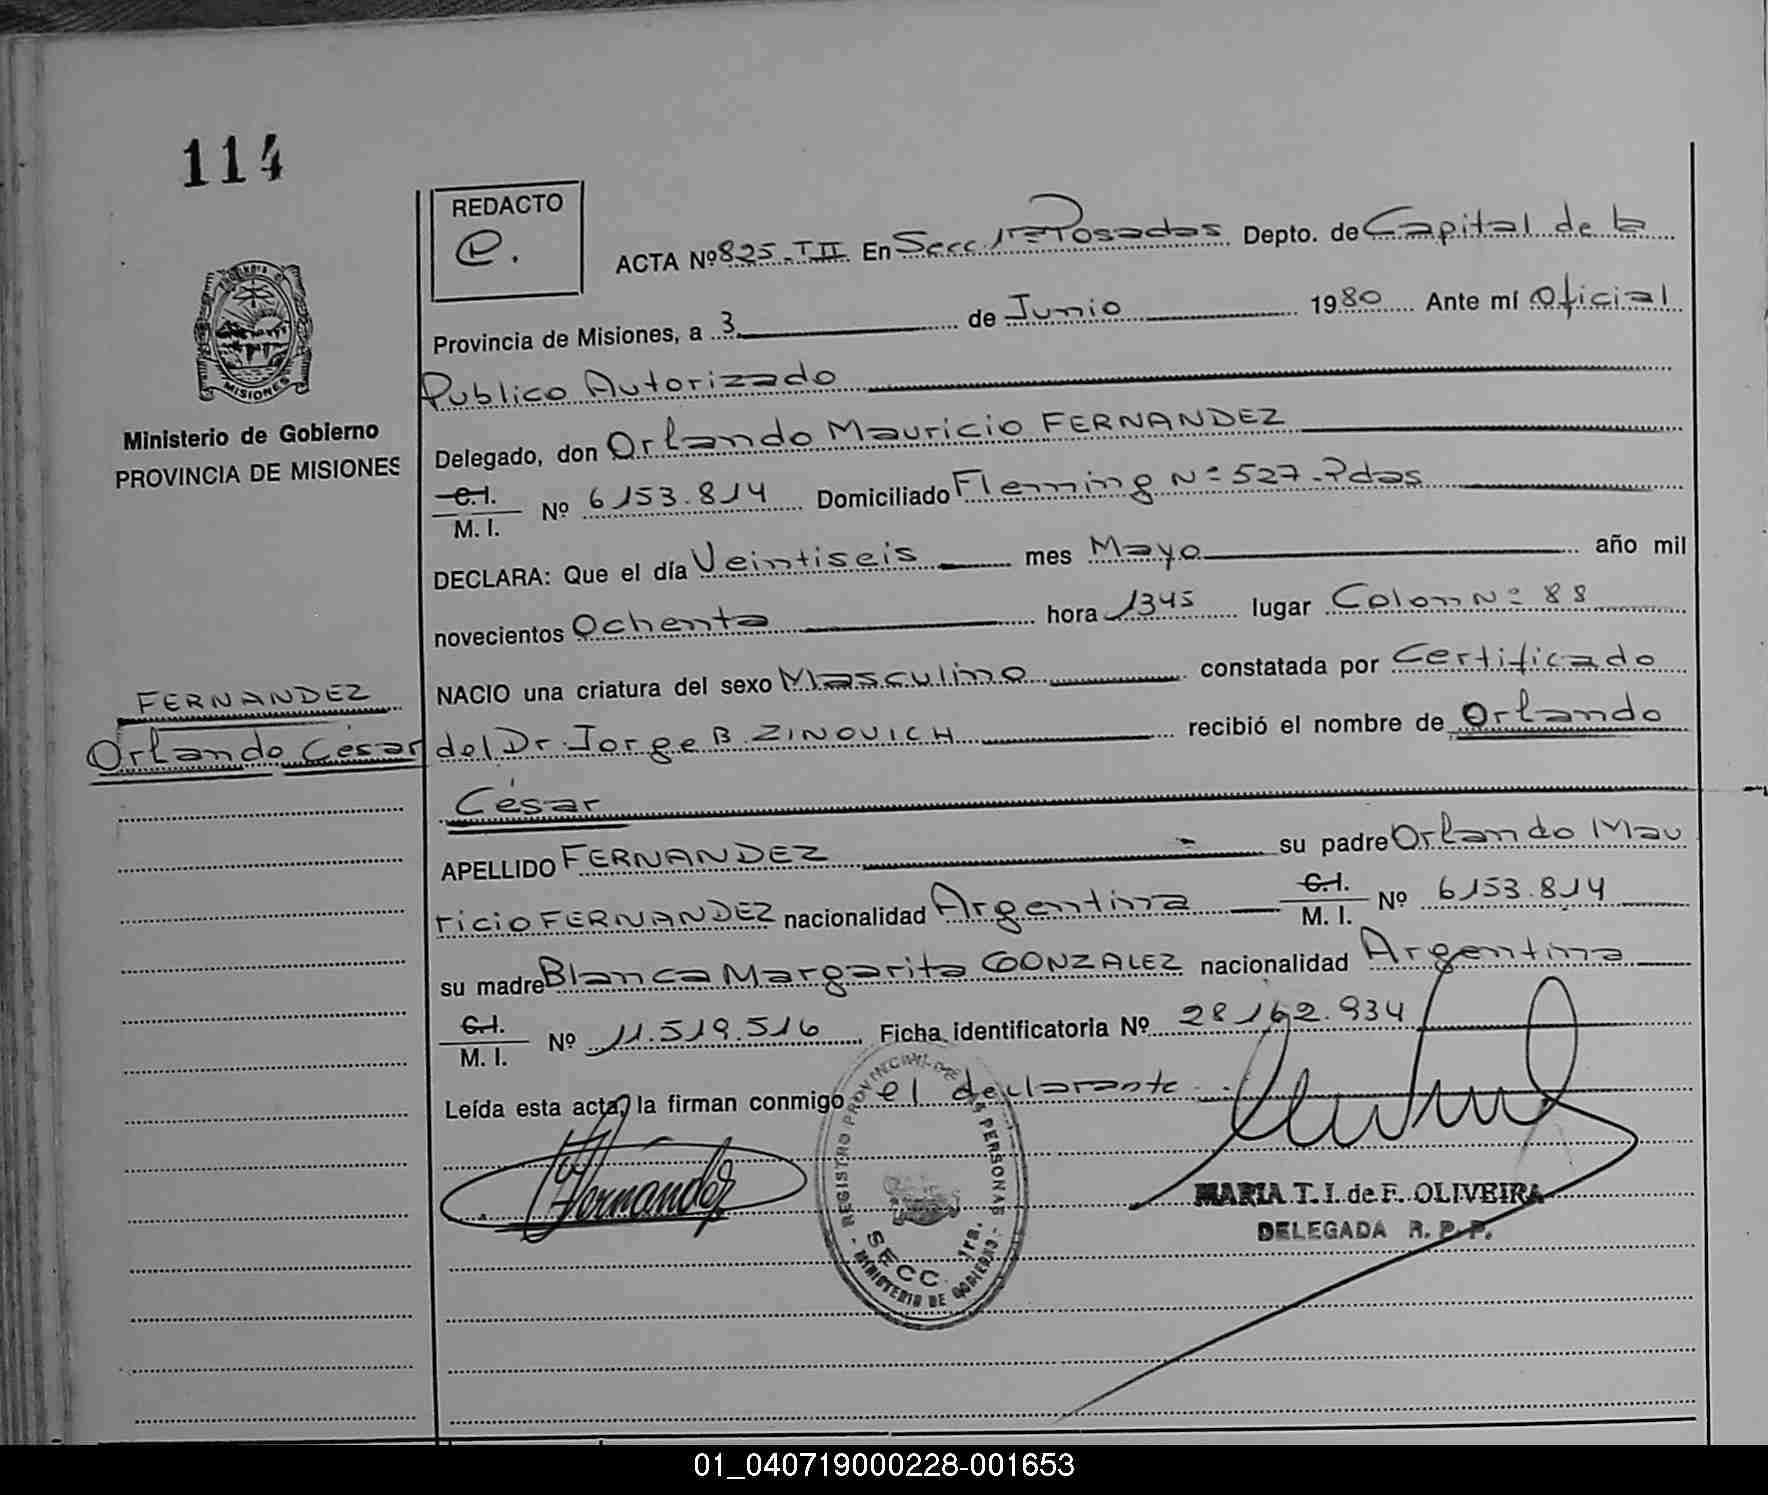 114
REDACTO
e.
ACTA Nº 825-TII En Secc. 1ra Posadas Depto. de Capital de la
Provincia de Misiones, a 3 de Junio 1980 Ante mí Oficial
Publico Autorizado
MISIONES
Ministerio de Gobierno
PROVINCIA DE MISIONES
Delegado, don Orlando Mauricio FERNANDEZ
C.I.
M. I. Nº 6153.814 Domiciliado Fleming Nº 527-Pdas
DECLARA: Que el día Veintiseis mes Mayo año mil
novecientos Ochenta hora 1345 lugar Colon Nº 88
NACIO una criatura del sexo Masculino constatada por Certificado
FERNANDEZ
Orlando César
del Dr. Jorge B. ZINOVICH recibió el nombre de Orlando
César
APELLIDO FERNANDEZ su padre Orlando Mau
ricio FERNANDEZ nacionalidad Argentina C.I. M. I. Nº 6153.814
su madre Blanca Margarita GONZALEZ nacionalidad Argentina
C.I.
M. I. Nº 11.519.516 Ficha identificatoria Nº 28162.934
Leída esta acta, la firman conmigo el declarante
Fernández
REGISTRO PROVINCIAL DE PERSONAS
SECC. 1ra.
MINISTERIO DE GOBIERNO
MARIA T. I. de F. OLIVEIRA
DELEGADA R. P. P.
01_040719000228-001653